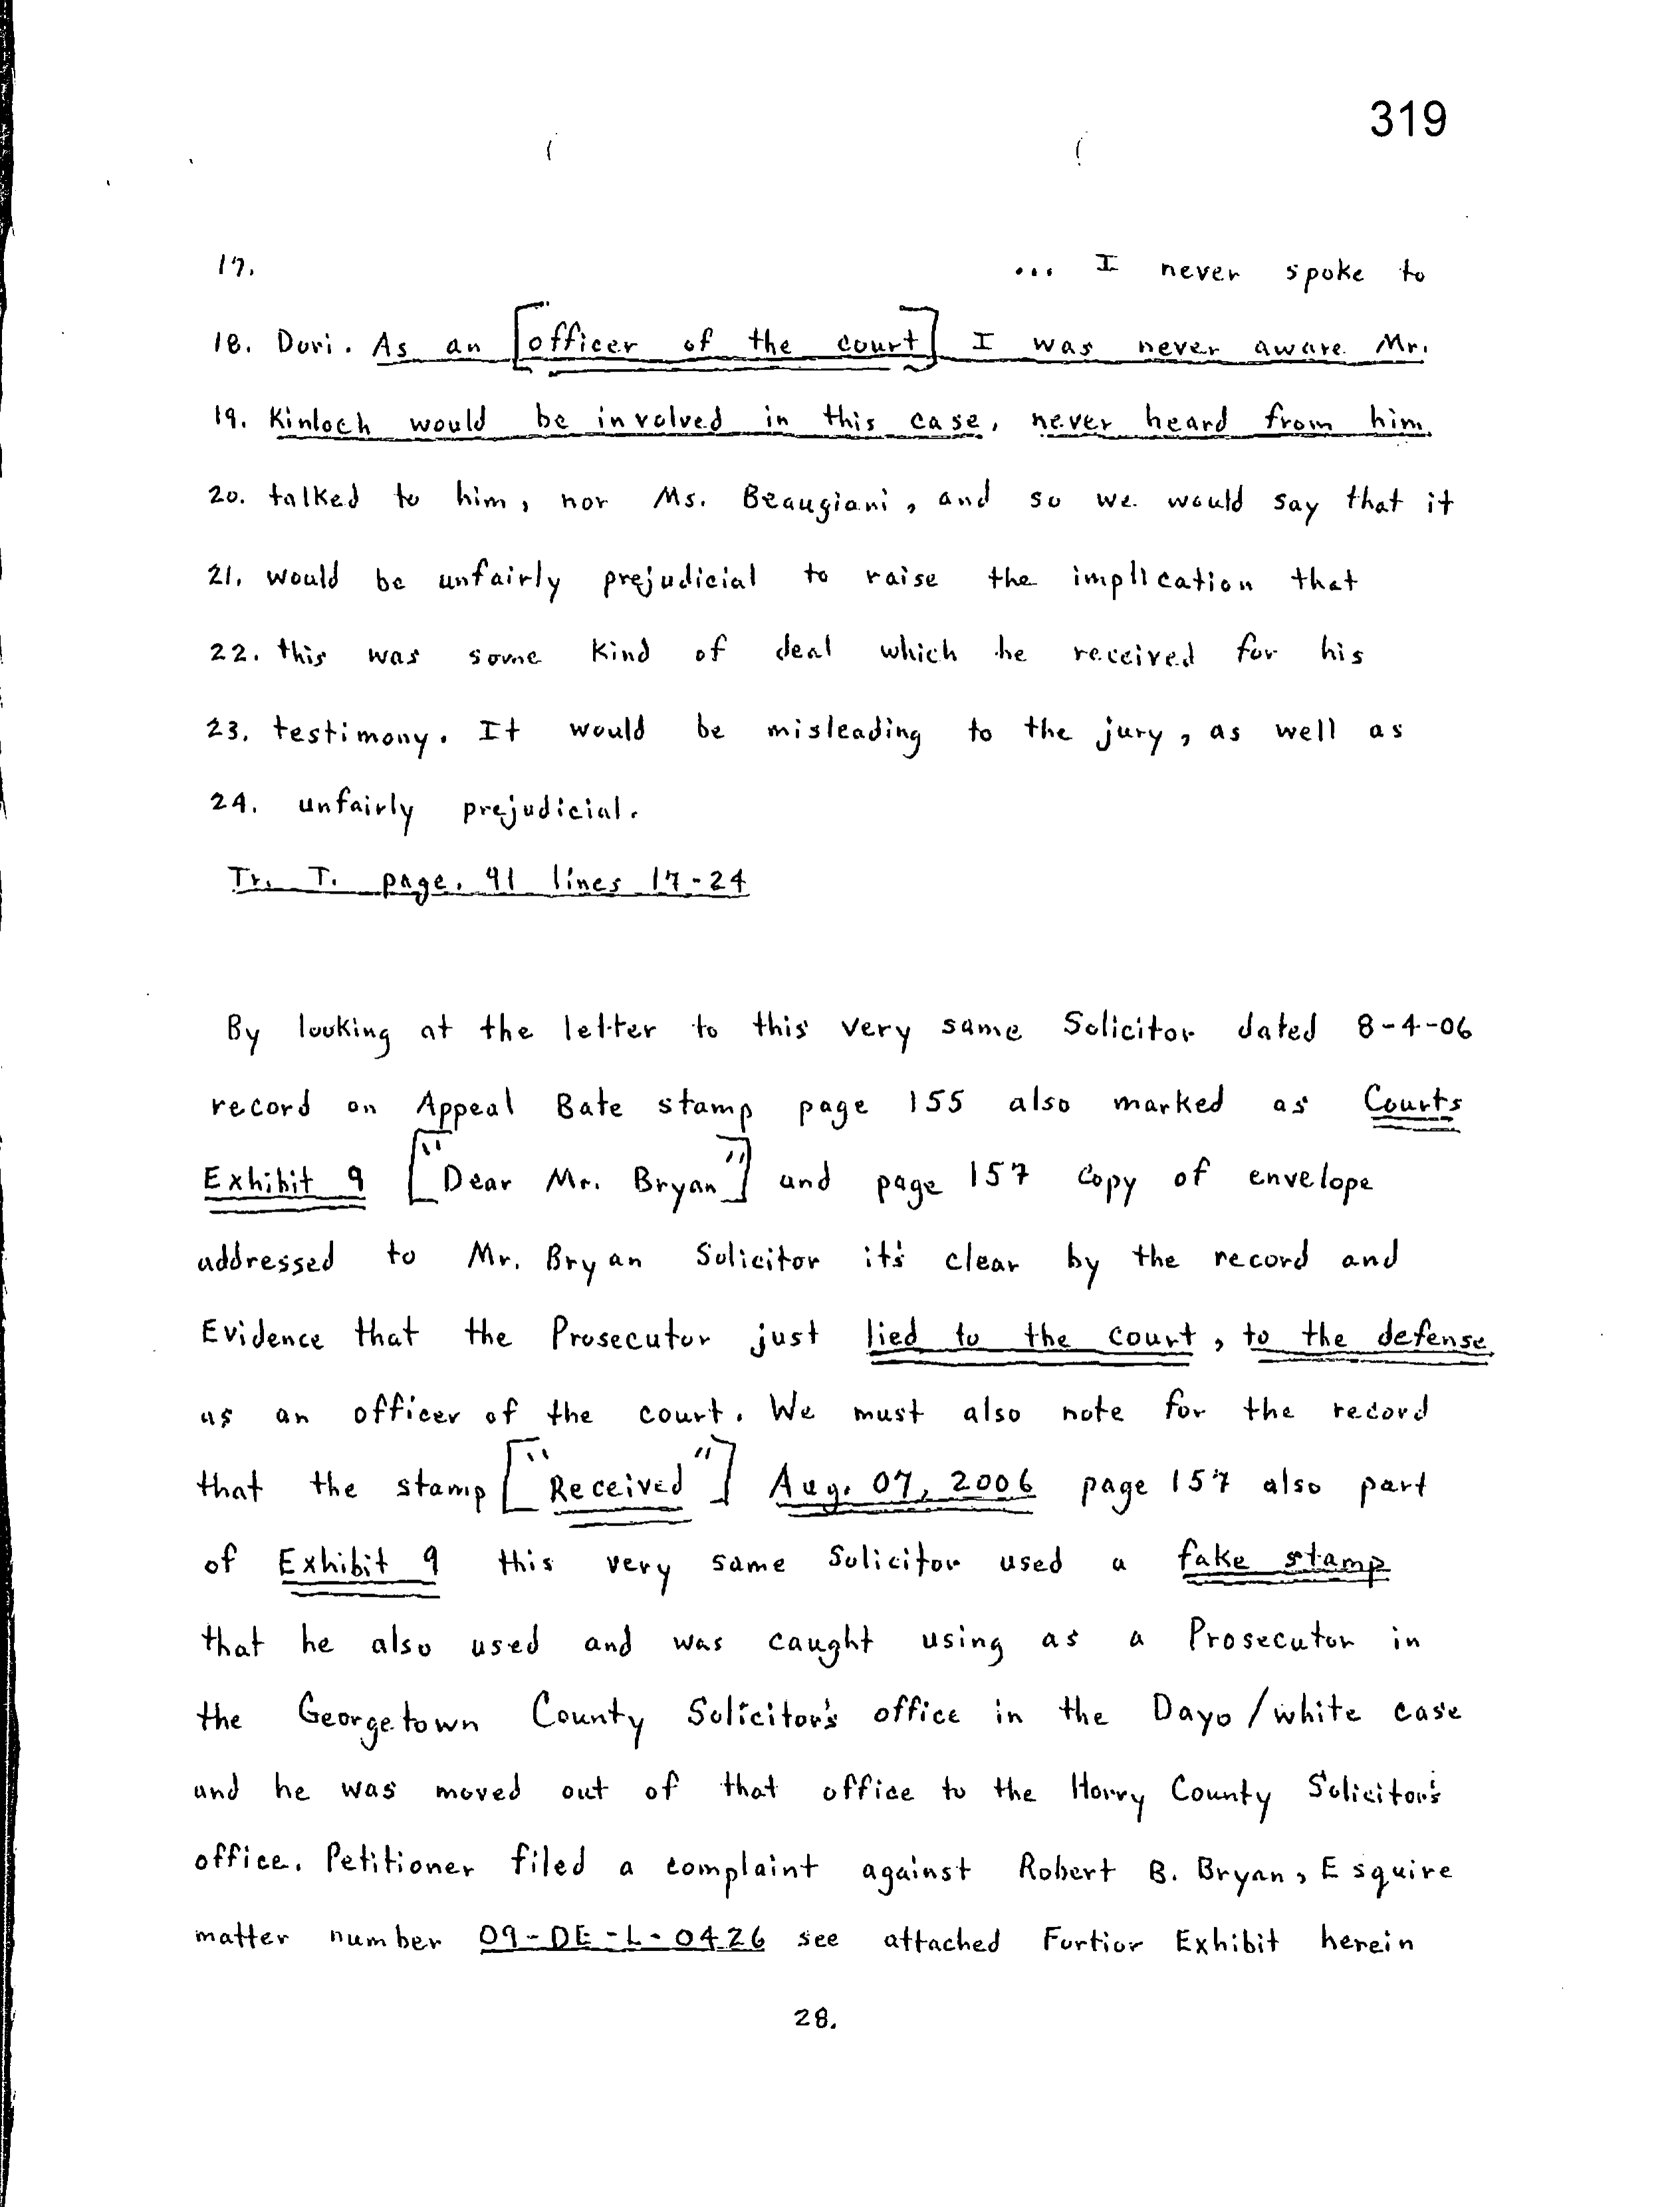 319
17. ... I never spoke to
18. Dori. As an [officer of the court] I was never aware Mr.
19. Kinloch would be involved in this case, never heard from him,
20. talked to him, nor Ms. Beaugiani, and so we would say that it
21. would be unfairly prejudicial to raise the implication that
22. this was some kind of deal which he received for his
23. testimony. It would be misleading to the jury, as well as
24. unfairly prejudicial.
Tr. T. page. 91 lines 17-24
By looking at the letter to this very same Solicitor dated 8-4-06
record on Appeal Bate stamp page 155 also marked as Courts
Exhibit 9 ["Dear Mr. Bryan"] and page 157 copy of envelope
addressed to Mr. Bryan Solicitor it's clear by the record and
Evidence that the Prosecutor just lied to the court, to the defense
as an officer of the court. We must also note for the record
that the stamp ["Received"] Aug. 07, 2006 page 157 also part
of Exhibit 9 this very same Solicitor used a fake stamp
that he also used and was caught using as a Prosecutor in
the Georgetown County Solicitor's office in the Dayo/white case
and he was moved out of that office to the Horry County Solicitor's
office. Petitioner filed a complaint against Robert B. Bryan, Esquire
matter number 09-DE-L-0426 see attached Furtior Exhibit herein
28.